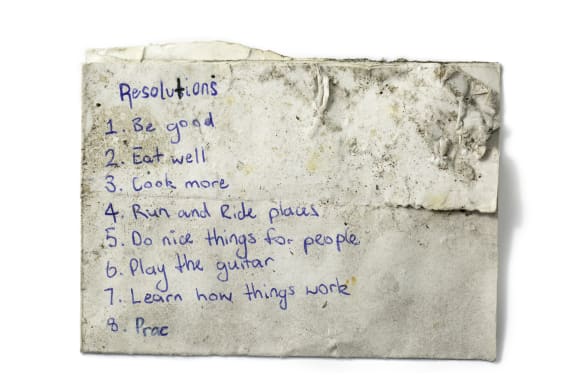 Resolutions
1. Be good
2. Eat well
3. Cook more
4. Run and Ride places
5. Do nice things for people
6. Play the guitar
7. Learn how things work
8. Prac